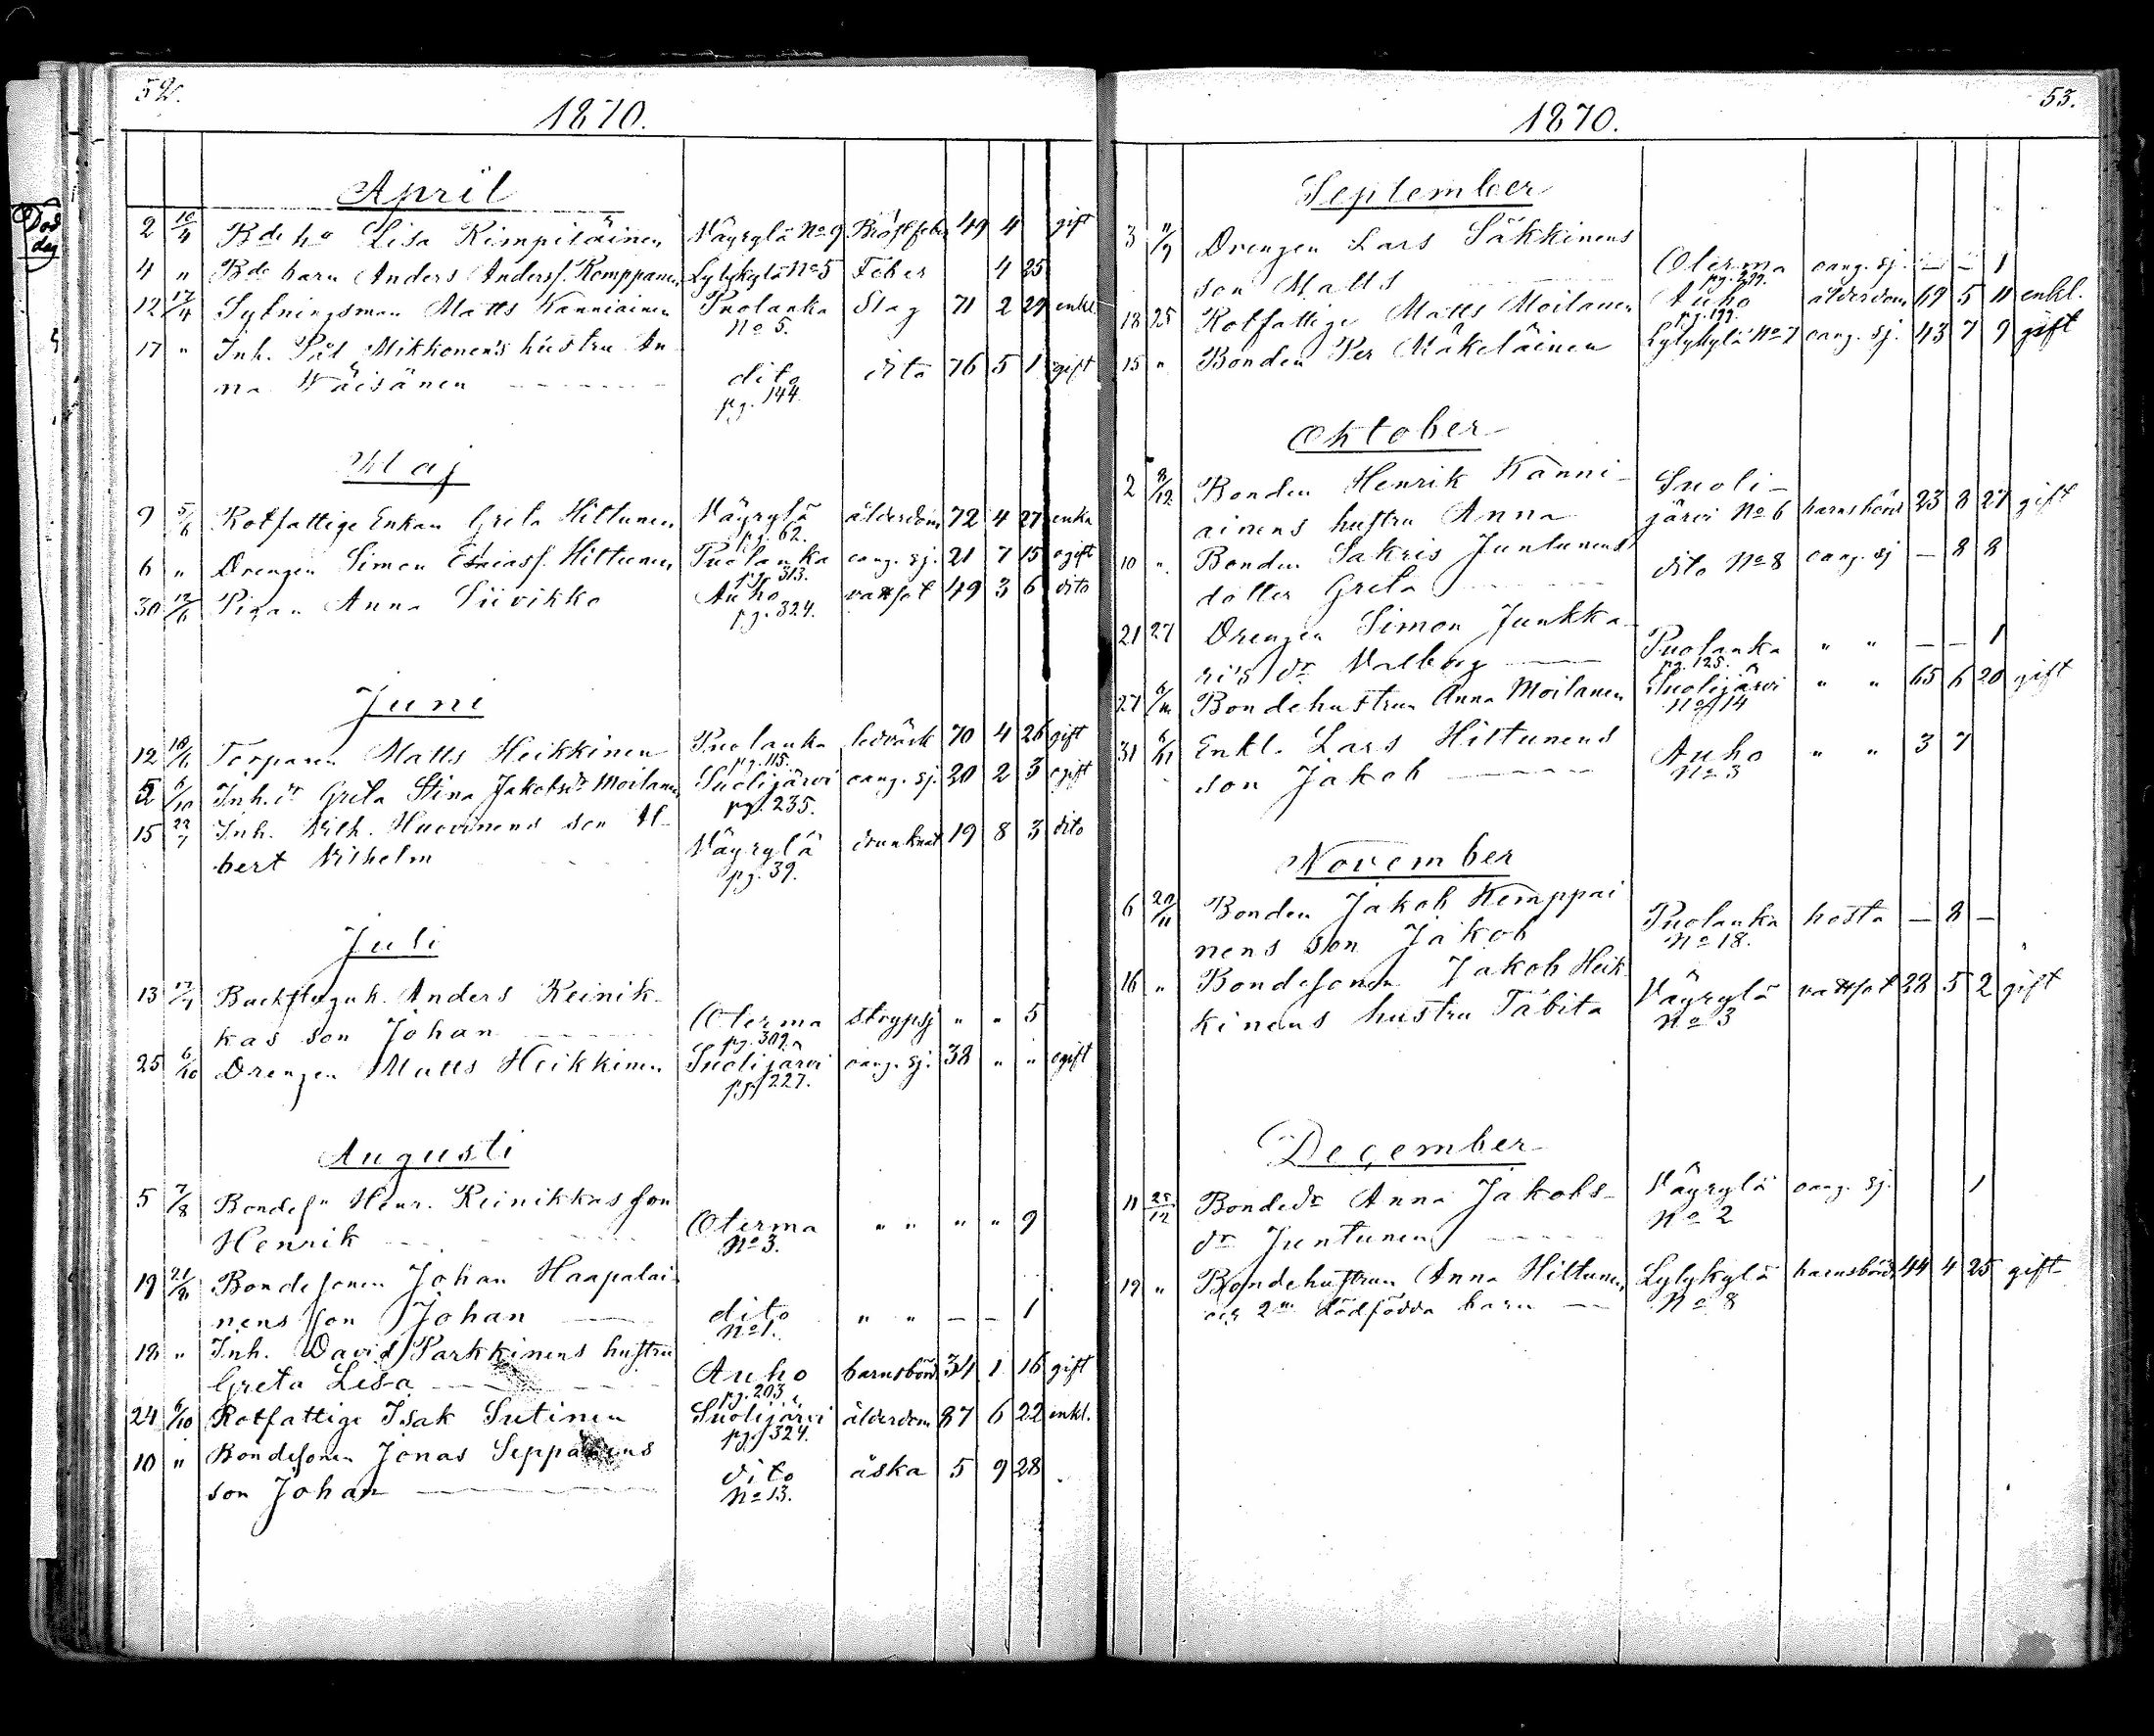 52.
1870.
April
2 10/4 Bde ho Lisa Kimpiläinen Väyrylä No 9 Bröstfeber 49 4 gift
4 " Bde barn Anders Andersf. Komppanen Lylykylä No 5 Feber 4 25
12 17/4 Sytningsman Matts Kanniainen Puolanka Slag 71 2 29 enkl.
No 5.
17 " Inh. Pål Mikkonen's hustru An
na Wäisänen dito dito 76 5 1 gift
pg. 144.
Maj
9 5/6 Rotfattige Enkan Greta Hiltunen Väyrylä ålderdom 72 4 27 enka
pg. 62.
6 " Drengen Simon Hiltunen Puolanka oang. sj. 21 7 15 ogift
pg. 313.
30 12/6 Pigan Anna Siivikko Auho vattsot 49 3 6 dito
pg. 324.
Juni
12 Torparen Matts Heikkinen Puolanka ledvärk 70 4 26 gift
pg. 115.
5 6/10 Inh. dr Greta Stina Jakobsdr Moilanen Suolijärvi oang. sj. 20 2 3 ogift
pg. 235.
15 22/7 Inh. Vilh. Huovinens son Al-
bert Vilhelm Väyrylä drunknat 19 8 3 dito
pg. 39.
Juli
13 17/7 Backstuguh. Anders Reinik-
kas son Johan Oterma Strypsj " " 5
pg. 309.
25 6/10 Drengen Matts Heikkinen Suolijärvi oang. sj. 38 " " ogift
pg. 227.
Augusti
5 7/8 Bondesn Henr. Reinikkas son
Henrik Oterma " " " " 9
No 3.
19 21/8 Bondesonen Johan Haapalai-
nens son Johan dito " " — — 1
No 1.
18 " Inh. David Parkkinens hustru
Greta Lisa Auho barnsbörd 34 1 16 gift
pg. 203.
24 6/10 Rotfattige Isak Sutinen Suolijärvi ålderdom 87 6 22 enkl.
pg. 324.
10 " Bondesonen Jonas Seppänens
son Johan dito åska 5 9 28
No 13.
53.
1870.
September
3 11/9 Drengen Lars Säkkinens
son Matts Oterma oang. sj. — — 1
18 25 Rotfattige Matts Moilanen Auho ålderdom 69 5 11 enkl.
pg. 199.
15 " Bonden Per Mäkeläinen Lylykylä No 7 oang. sj. 43 7 9 gift
Oktober
2 Bonden Henrik Kanni- Suoli-
ainens hustru Anna järvi No 6 barnsbörd 23 8 27 gift
10 " Bonden Sakris Juntunens
dotter Greta dito No 8 oang. sj — 8 8
21 27 Drengen Simon Junkka-
ri's dr Valborg Puolanka " " — — 1
pg. 125.
27 Bondehustrun Anna Moilanen Suolijärvi " " 65 6 20 gift
No 14
31 6/11 Enkl. Lars Hiltunens
son Jakob Auho " " 3 7
No 3
November
6 20/11 Bonden Jakob Kemppai
nens son Jakob Puolanka hosta — 8 —
No 18.
16 " Bondesonen Jakob Heik-
kinens hustru Tabita Väyrylä vattsot 28 5 2 gift
No 3
December
11 25/12 Bondedr Anna Jakobs- Väyrylä oang. sj. 1
dr Juntunen No 2
19 " Bondehustrun Anna Hiltunen Lylykylä barnsbörd 44 4 25 gift
och 2ne dödfödda barn No 8